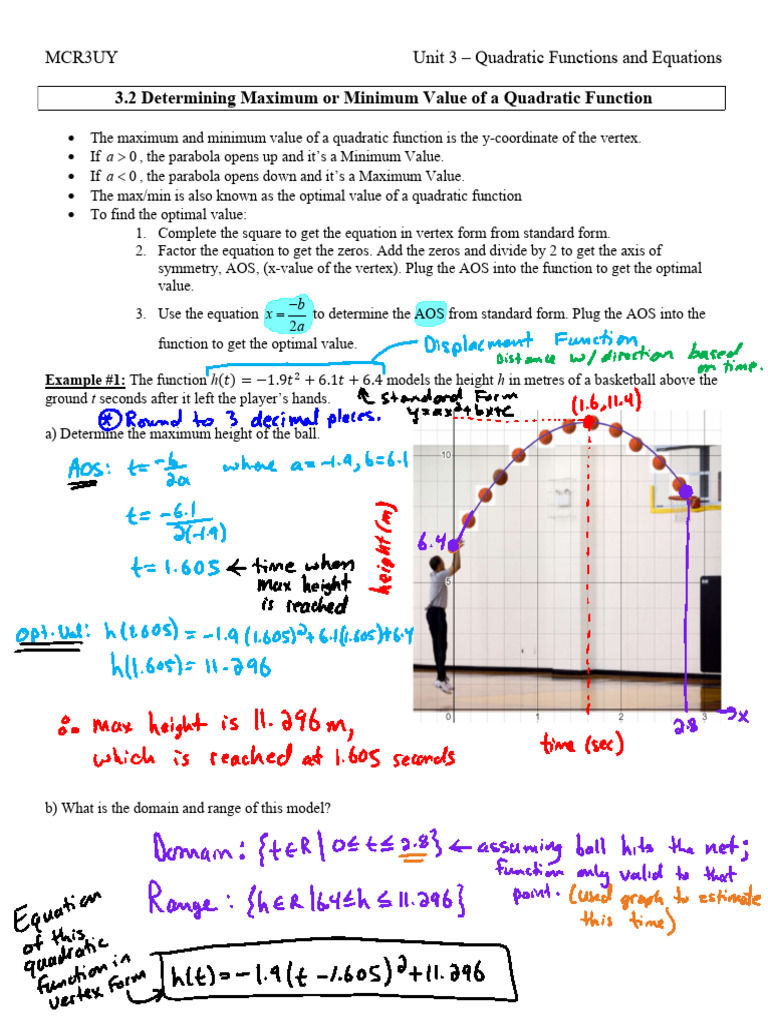 MCR3UY Unit 3 – Quadratic Functions and Equations
3.2 Determining Maximum or Minimum Value of a Quadratic Function
• The maximum and minimum value of a quadratic function is the y-coordinate of the vertex.
• If a > 0 , the parabola opens up and it's a Minimum Value.
• If a < 0 , the parabola opens down and it's a Maximum Value.
• The max/min is also known as the optimal value of a quadratic function
• To find the optimal value:
1. Complete the square to get the equation in vertex form from standard form.
2. Factor the equation to get the zeros. Add the zeros and divide by 2 to get the axis of
symmetry, AOS, (x-value of the vertex). Plug the AOS into the function to get the optimal
value.
3. Use the equation x = -b/2a to determine the AOS from standard form. Plug the AOS into the
function to get the optimal value.
Displacment Function
Distance w/ direction based
on time.
Example #1: The function h(t) = −1.9t² + 6.1t + 6.4 models the height h in metres of a basketball above the
ground t seconds after it left the player's hands.
↖ Standard Form
y=ax²+bx+c
⊛ Round to 3 decimal places.
a) Determine the maximum height of the ball.
AOS: t= -b/2a where a=-1.9, b=6.1
t= -6.1/2(-1.9)
t=1.605 ← time when
max height
is reached
opt.val: h(1.605) = -1.9(1.605)²+6.1(1.605)+6.4
h(1.605)= 11.296
∴ max height is 11.296m,
which is reached at 1.605 seconds
(1.6, 11.4)
10
6.4
5
height (m)
0 1 2 3 → x
2.8
time (sec)
b) What is the domain and range of this model?
Domain: {t∈R | 0≤t≤2.8} ← assuming ball hits the net;
function only valid to that
point. (used graph to estimate
this time)
Range: {h∈R | 6.4≤h≤11.296}
Equation
of this
quadratic
function in
vertex form
h(t)=-1.9(t-1.605)²+11.296